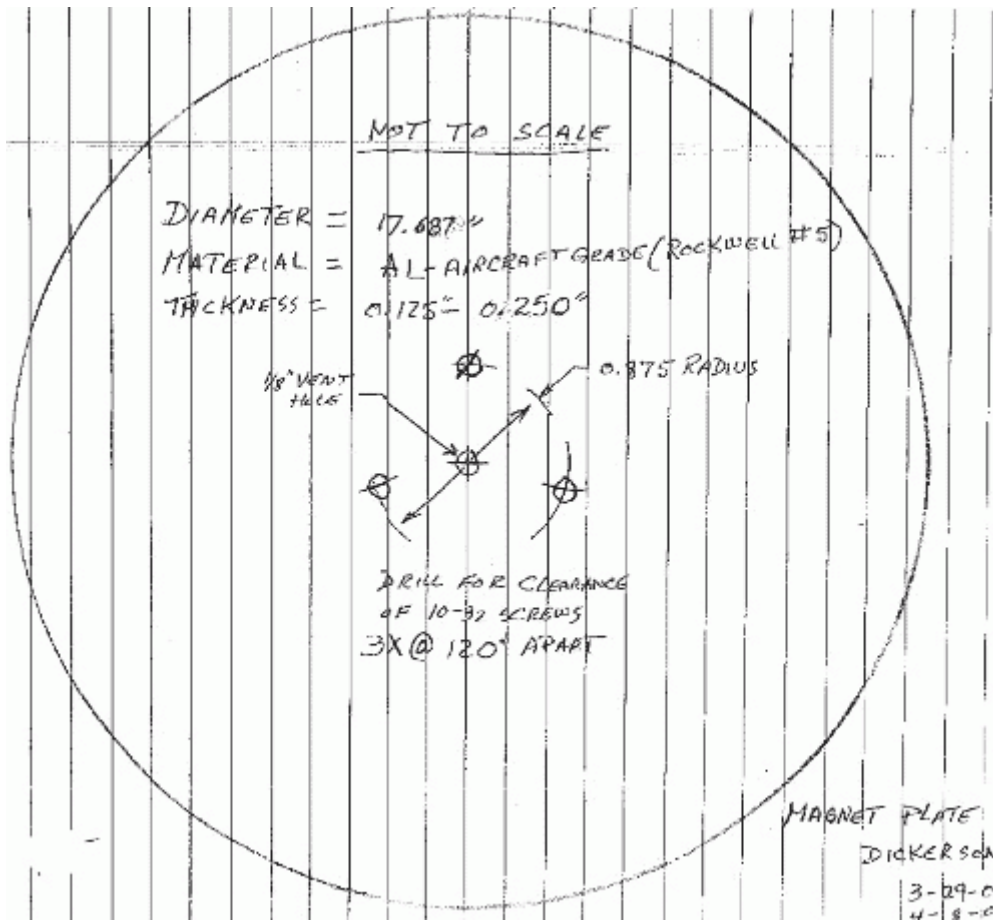 NOT TO SCALE
DIAMETER = 17.687"
MATERIAL = AL-AIRCRAFT GRADE (ROCKWELL #5)
THICKNESS = 0.125"- 0.250"
1/8" VENT
HOLE
0.875 RADIUS
DRILL FOR CLEARANCE
OF 10-32 SCREWS
3X @ 120° APART
MAGNET PLATE
DICKERSON
3-29-0
4-8-0